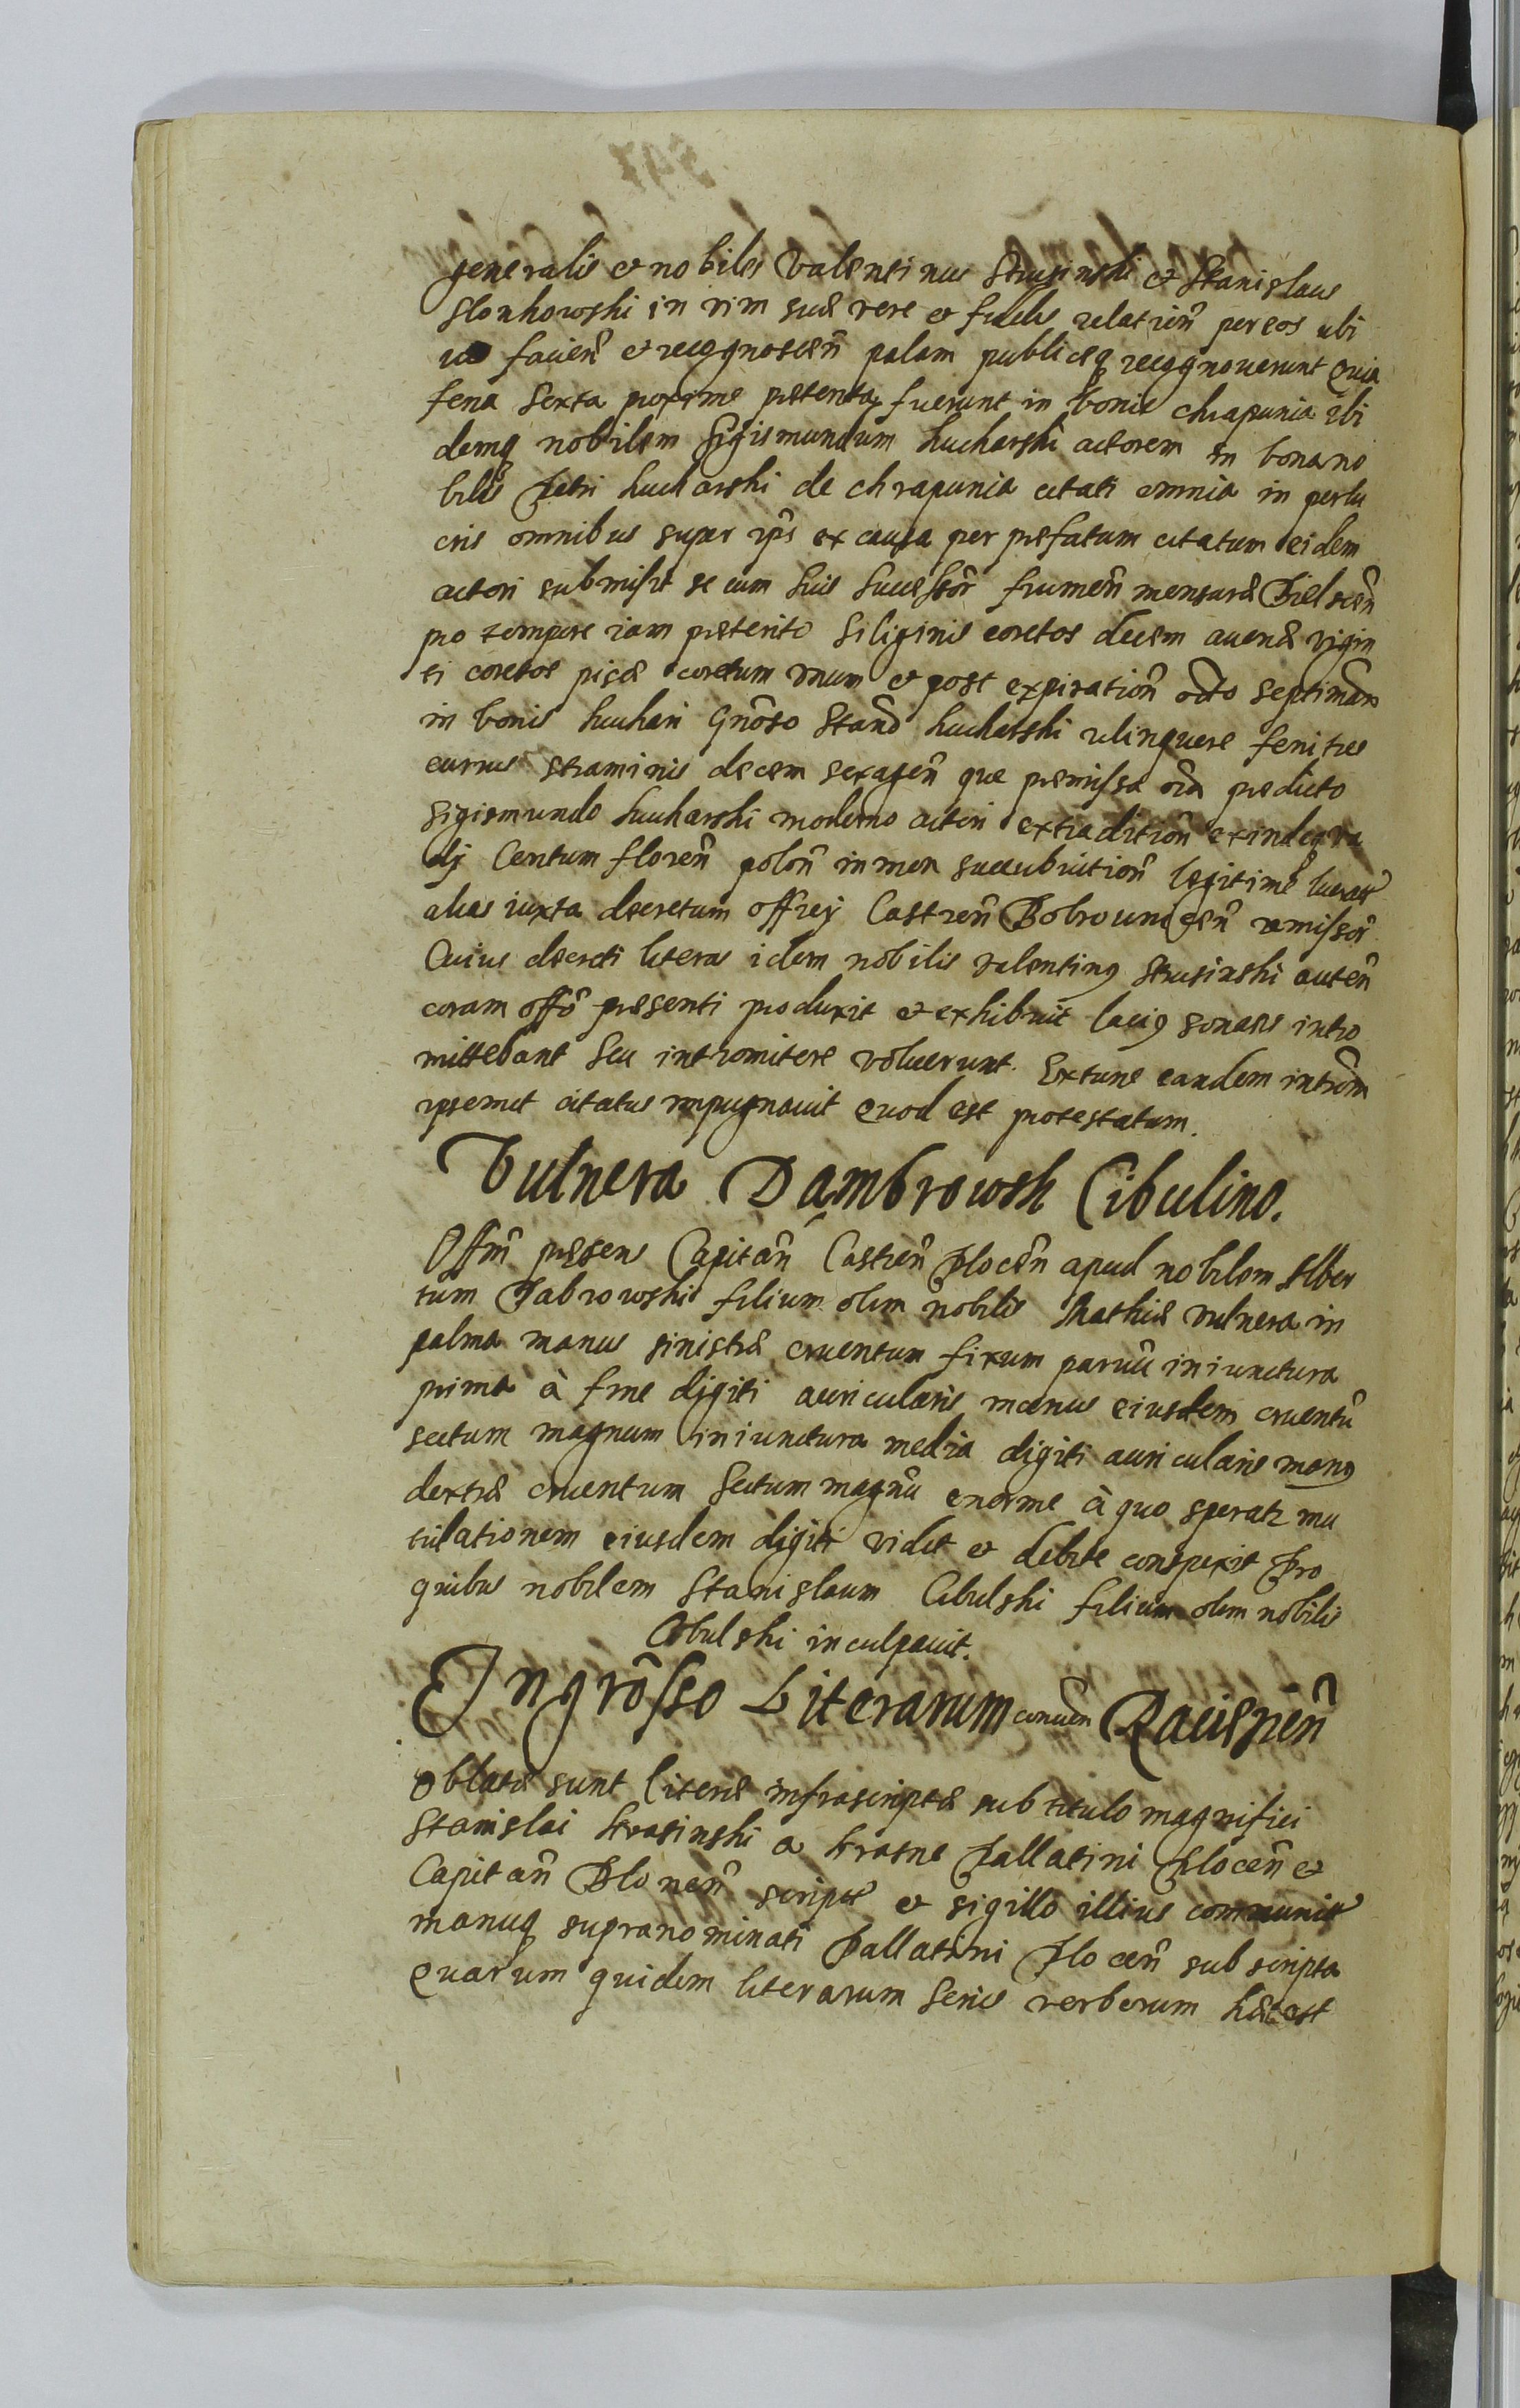 generalis et nobiles Valentinus Strusinski et Stanislaus
Slonkowski in vim suæ veræ et fidelis relationẽ per eos ubi
vis facienẽ et recognoscenẽ palam publiceq recognoverunt Quia
feria sexta proxime præterita fuerunt in bonis Chrapunia ibi
demq nobilem Sigismundum Kucharski actorem in bona no
bilis Petri Kucharski de Chrapunia citati omnia in perlu
cris omnibus super ip̃s ex causa per præfatum citatum eidem
actori submisit se cum suis successor̃ frumeñ mensuræ Bielscen̄
pro tempore iam præterito siliginis coretos decem avenæ vigin
ti coretos pisæ coretum unum et post expirationẽ octo septimañ
in bonis Kuchari Gnõso Stanõ Kucharski relinquere feni tres
currus straminis decem sexageñ que præmissa om̃ia prædicto
Sigismundo Kucharski moderno actori extraditioñ exindeq va
dij Centum floreñ poloñ in mon succubuitioñ legitime lucrat
alias iuxta decretum officij Castreñ Bobrowniceñ remissor
Cuius decreti literas idem nobilis Valentinq Strusinski auteñ
coram offõ presenti produxit et exhibuit laciq sonañs intro
mittebant seu intromitere voluerunt. Extunc eandem introm̃
ipsemet citatus impugnavit quod est protestatum.
Vulnera Dambrowsk Cibulino.
Offm̃ præsens Capitañ Castreñ Ploceñ apud nobilem Alber
tum Dabrowski filium olim nobilis Mathiæ vulnera in
palma manus sinistræ cruentum fixum parvũ in iunctura
prima à fine digiti auricularis manus eiusdem cruentũ
sectum magnum in iunctura media digiti auricularis manq
dextræ cruentum sectum magnũ enorme à quo speratr mu
tilationem eiusdem digiti vidit et debite conspexit Pro
quibus nobilem Stanislaum Cibulski filium olim nobilis
Cibulski inculpavit.
Ingrõsso Literarum conveñ Racispieñ
Oblatæ sunt literæ infrascriptæ sub titulo magnifici
Stanislai Krasinski a Krasne Pallatini Ploceñ et
Capitañ Ploneñ scriptæ et sigillo illius communitæ
manuq supranominati Pallatini Ploceñ subscripta
Quarum quidem literarum series verborum hæc est